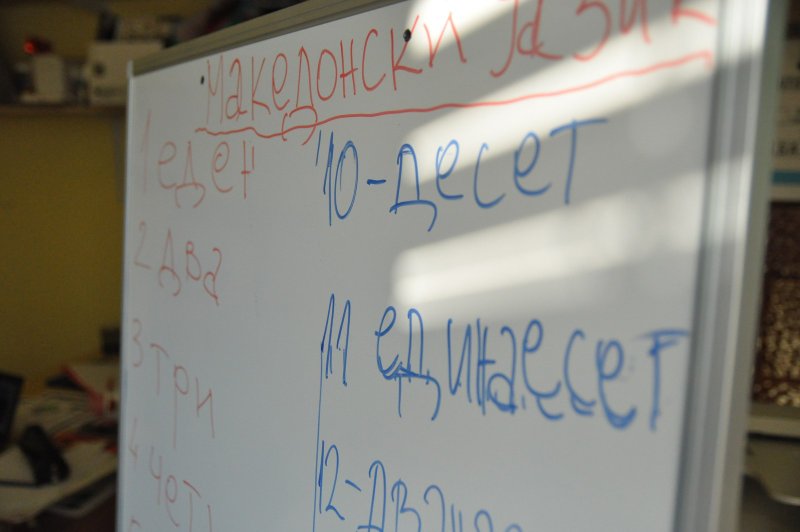 Македонски Јазик
1 еден
2 два
3 три
4 чет
10-десет
11 единаесет
12-двана